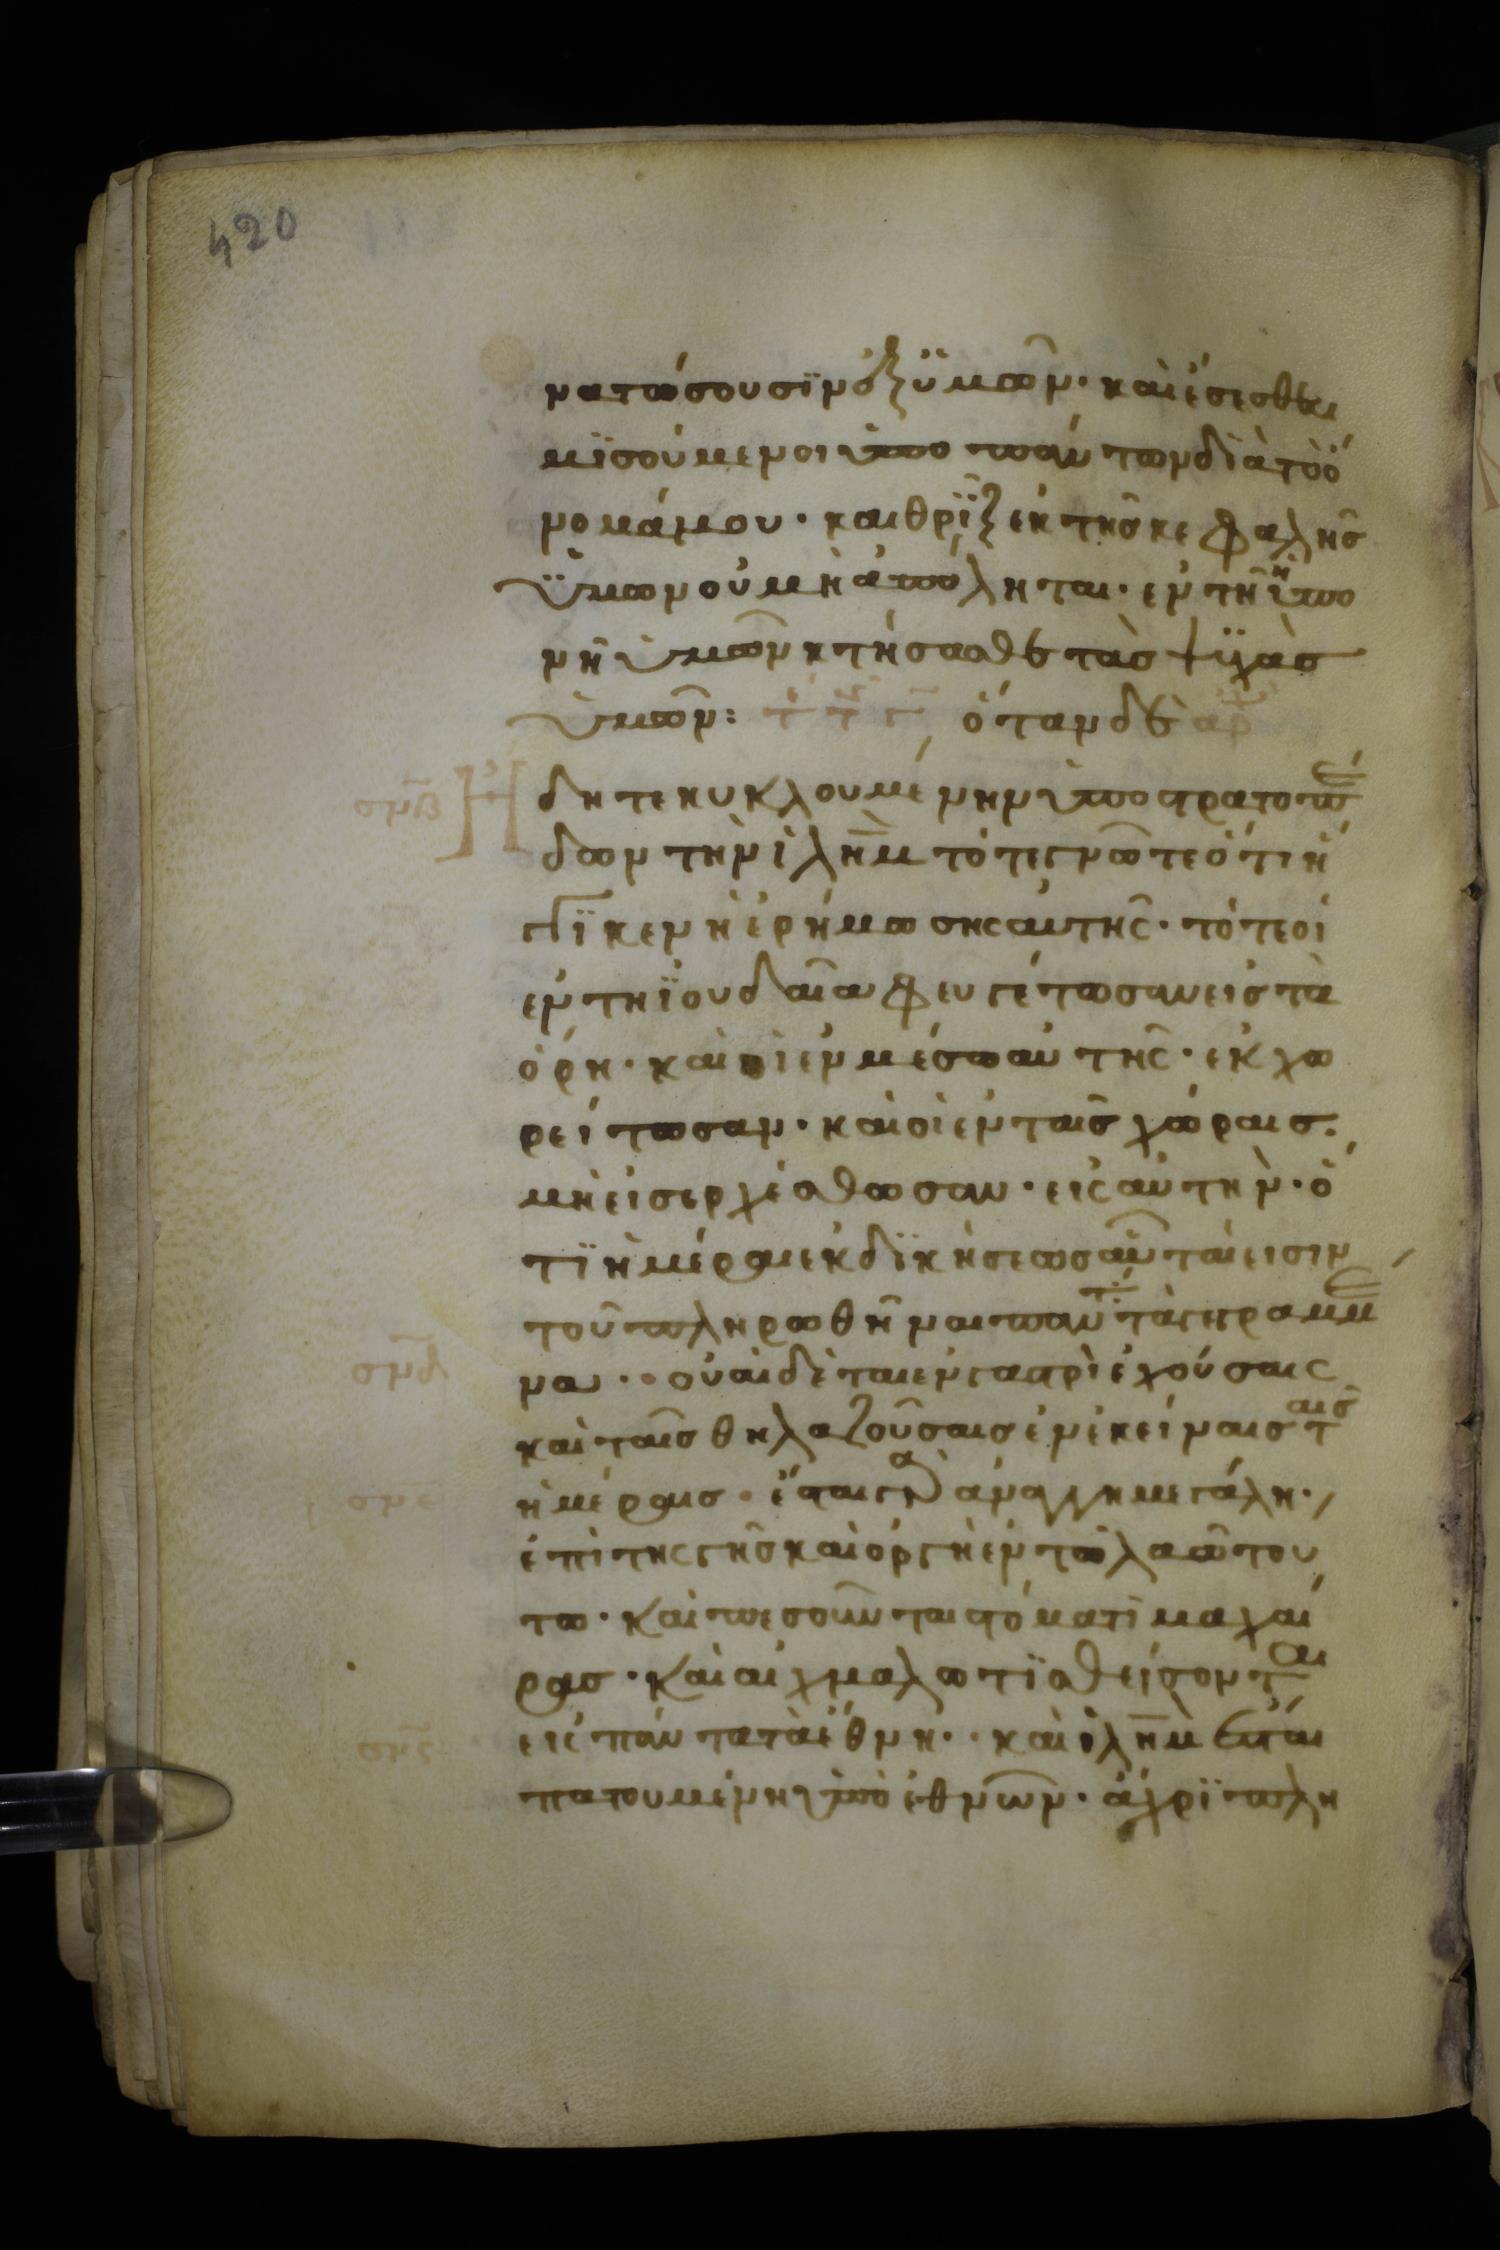 420
νατώσουσϊν ἐξ ὑμῶν· καὶ ἔσεσθαι
μϊσούμενοι ὑπο πάντων δϊὰ τὸ ὄ
νομά μου· και θρὶξ εκ της κεφαλῆς
ὑμων οὐ μὴ ἀπόληται· ἐν τῆ ὑπο
μνῆ ὑμῶν κτήσασθε τὰς ψϋχὰς
ὑμῶν: ὅταν δὲ
σμβ Ἤδητε κυκλουμένην ὑπο στρατοπέ
δων τὴν ἰλημ τότε γνῶτε ὅτι ἤ
γγϊκεν ἡ ἐρήμωσης αυτῆς· τότε οἱ
ἐν τη ϊουδαία φευγέτωσαν εἰς τὰ
ὄρη· καὶ οἱ ἐν μέσω αὐτῆς· ἐκχω
ρείτωσαν· καὶ οἱ ἐν ταῖς χώραις·
μὴ εἰσερχέσθωσαν· εἰς αὐτὴν· ὅ
τϊ ἡμέραι ἐκδϊκήσεως αὗταί εισιν
τοῦ πληρωθῆναι πάντα τὰ γεγραμμέ
σμδ να· οὐαὶ δὲ ταις ἐν γαστρὶ ἐχούσαις
καὶ ταῖς θηλαζούσαις ἐν ἐκείναις ταῖς
σμε ἡμέραις· ἔσται γὰρ ἀνάγγη μεγάλη·
ἐπὶ της γῆς καὶ ὀργὴ ἐν τῶ λαῶ του
τω· καὶ πεσοῦνται στόματι μαχαί
ρας· καὶ αἰχμαλωτϊσθείσονται
σμς εἰς πάντα τὰ ἔθνη· καὶ ἰλημ ἔσται
πατουμένη ὑπὸ ἐθνῶν· ἄχρϊ πλη